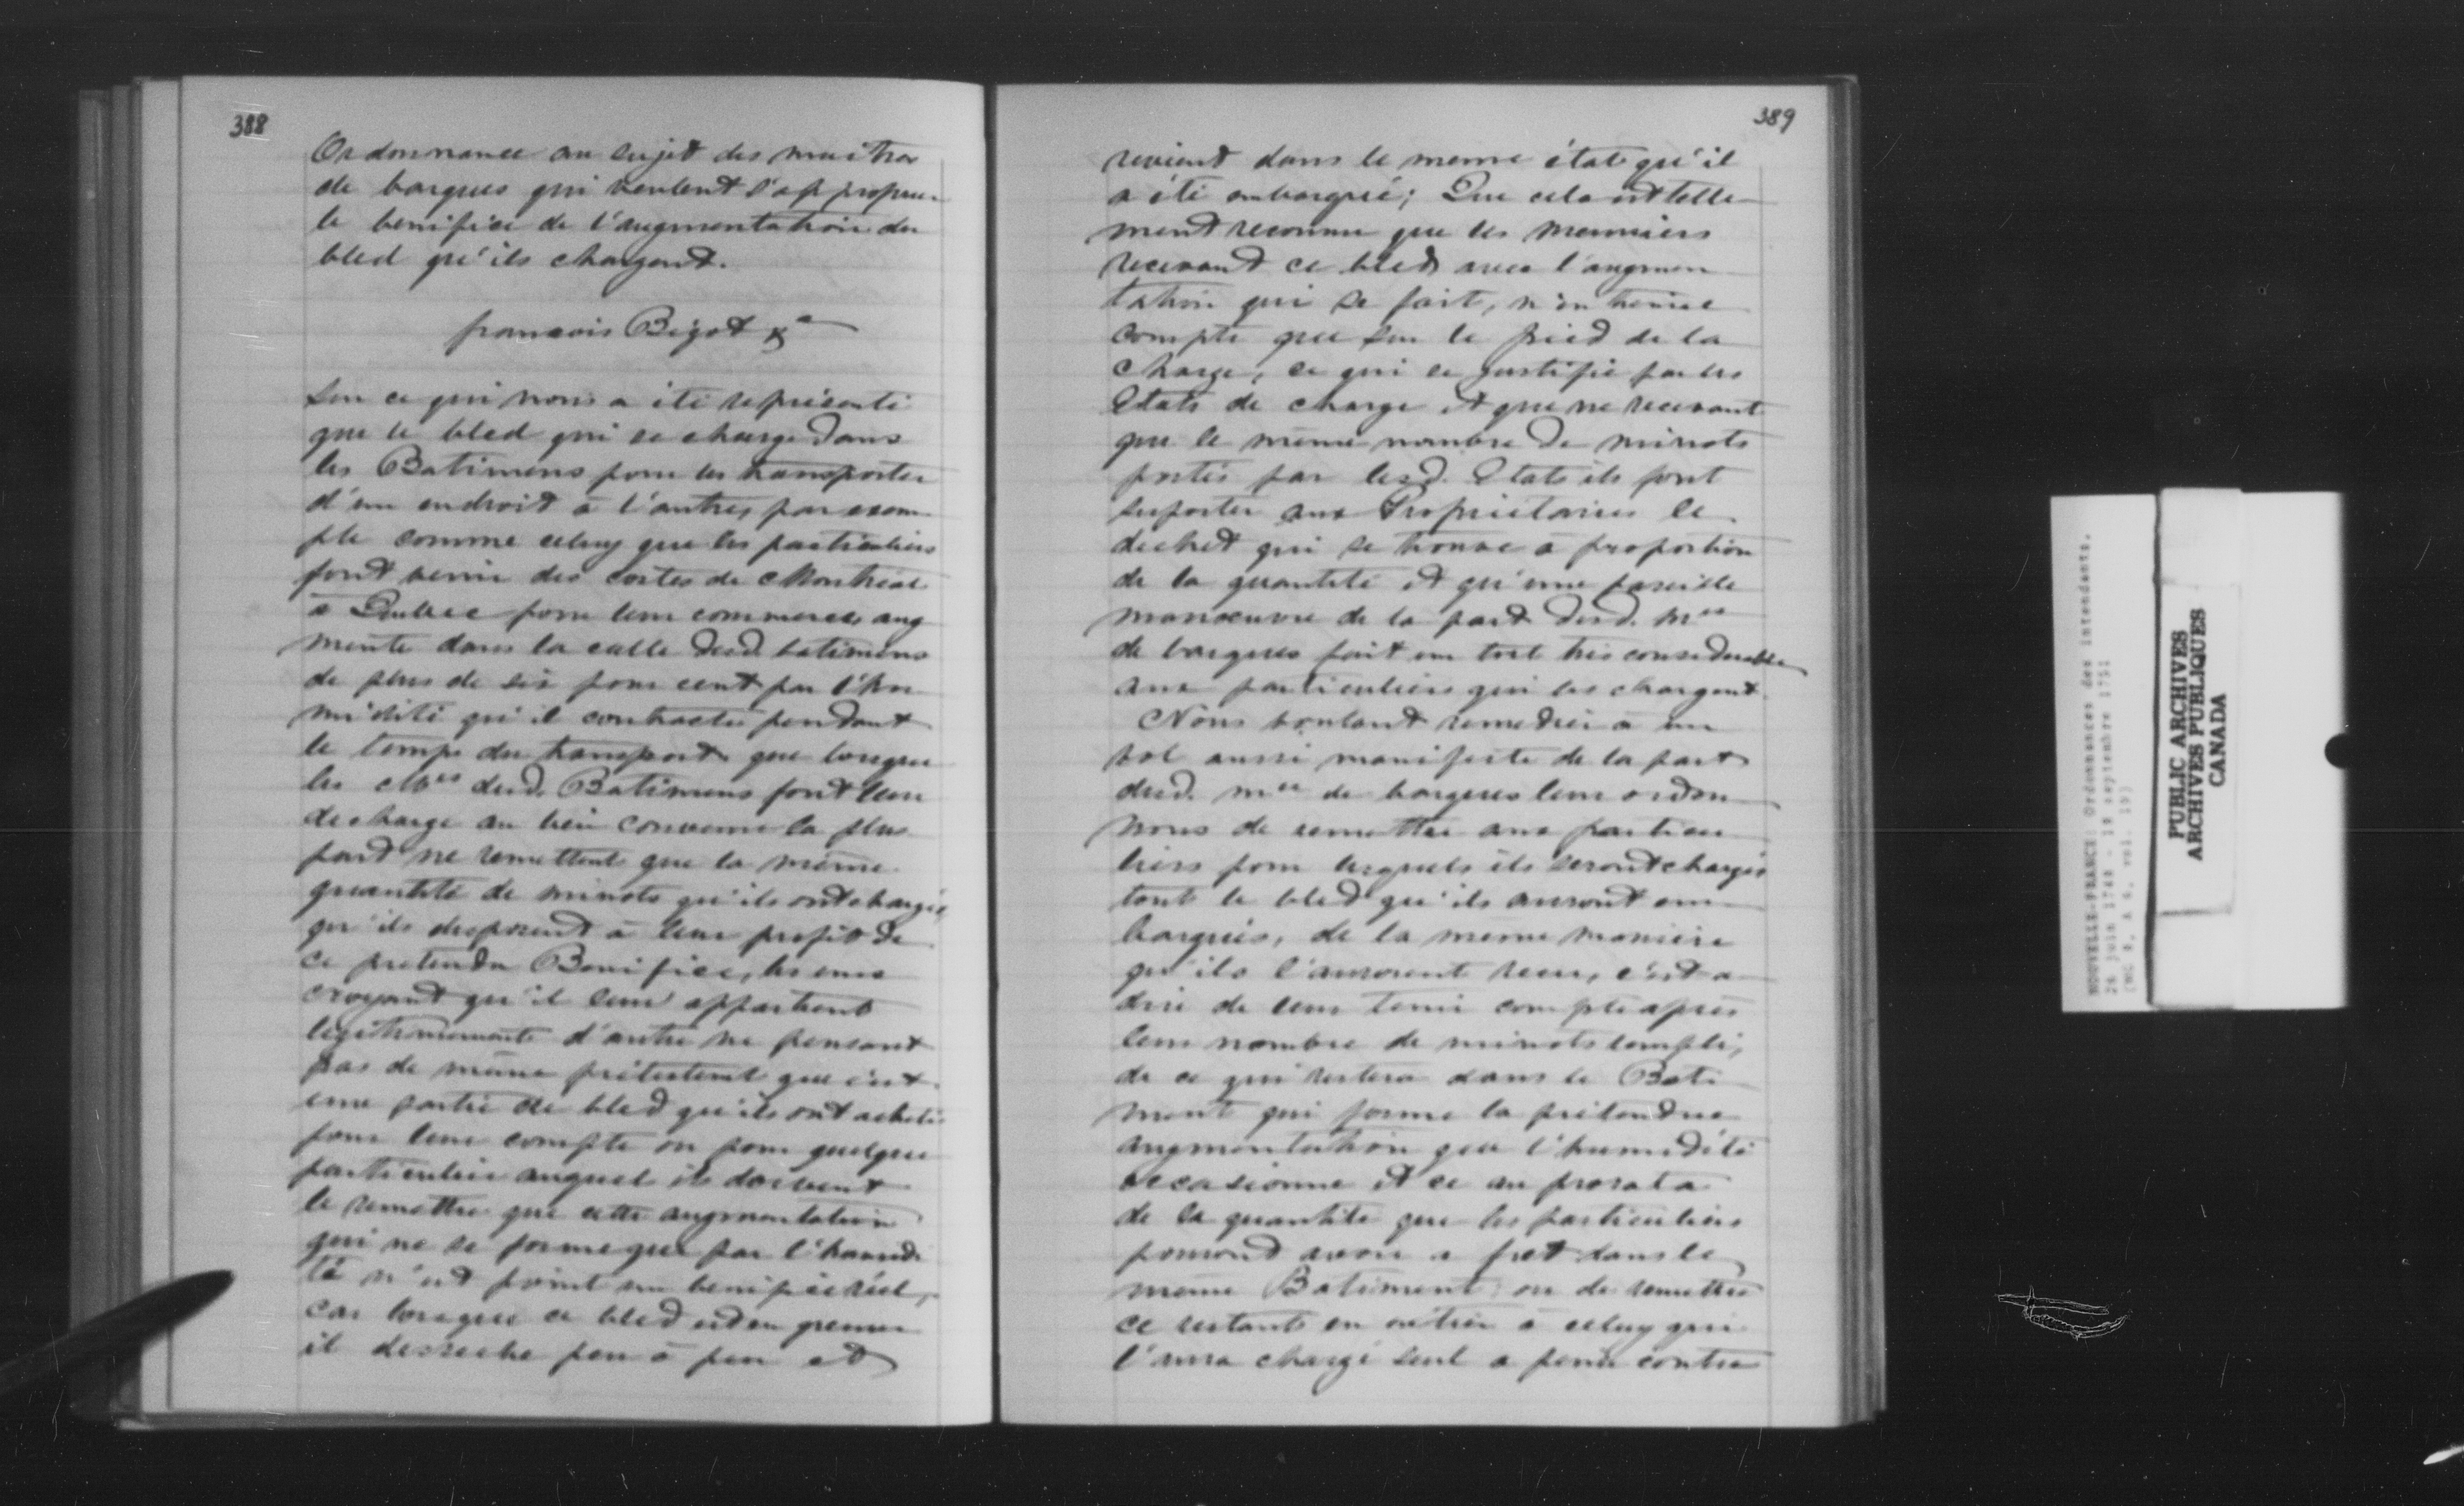 388
Ordonnance au sujet des maitres
de barques qui veulent s'approprier
le benifice de l'augmentation du
bled qu'ils chargent.
francois Bigot &a
Sur ce qui nous a été représenté
que le bled qui se charge dans
les Batimens pour les transporter
d'un endroit à l'autre, par exem
ple comme celuy que les particuliers
font venir des costes de Montréal
a Quebec pour leur commerce, aug
mente dans la calle desd. batimens
de plus de six pour cent par l'hu
midité qu'il contracte pendant
le temps du transport que lorsque
les Mres desd. Batimens font leur
decharge au lieu convenu la plus
part ne remettent que la même
quantité de minots qu'ils ont chargés
qu'ils disposent à leur profit de
ce pretendu Benifice, les uns
croyant qu'il leur appartient
legitimement d'autre ne pensant
pas de même prétextent que c'est
une partie de bled qu'ils ont acheté
pour leur compte ou pour quelque
particulier auquel ils doivent
le remettre que cette augmentation
qui ne se forme que par l'humidi
té n'est point un benifice réel,
car lorsque ce bled est en grenier
il desseche peu à peu et
389
revient dans le meme état qu'il
a été embarqué; Que cela est telle
ment reconnu que les meuniers
recevant ce bled avec l'augmen
tation qui se fait, n'en tienne
compte que sur le pied de la
charge, ce qui se justifie par les
Etats de charge et que ne recevant
que le même nombre de minots
portés par lesd. Etats ils font
suporter aux Proprietaires le
dechet qui se trouve a proportion
de la quantité et qu'une pareille
manoeuvre de la part desd. mes
de barques fait un tort très considerable
aux particuliers qui les chargent.
Nous voulant remedier à un
vol aussi manifeste de la part
desd. mes de barques leur ordon
nons de remettre aux particu
liers pour lesquels ils seront chargés
tout le bled qu'ils auront em
barqués, de la meme maniere
qu'ils l'auroient receu, c'est a
dire de leur tenir compte après
leur nombre de minots rempli,
de ce qui restera dans le Bati
ment qui forme la prétendue
augmentation que l'humidité
occasionne et ce au prorata
de la quantité que les particuliers
pourront avoir a fret dans le
même Batiment ou de remettre
ce restant en entier à celuy qui
l'aura chargé seul a peine contre
NOUVELLE-FRANCE: Ordonnances des intendants.
26 juin 1748 - 18 septembre 1751
PUBLIC ARCHIVES
ARCHIVES PUBLIQUES
CANADA